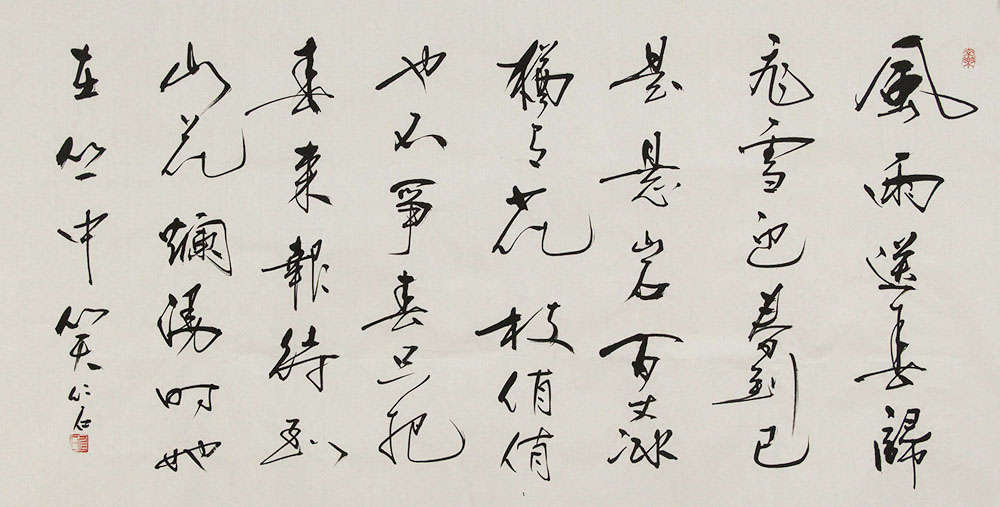 風雨送春歸
飛雪迎春到已
是悬岩百丈冰
猶有花枝俏俏
也不爭春只把
春來報待到
山花爛漫时她
在丛中笑